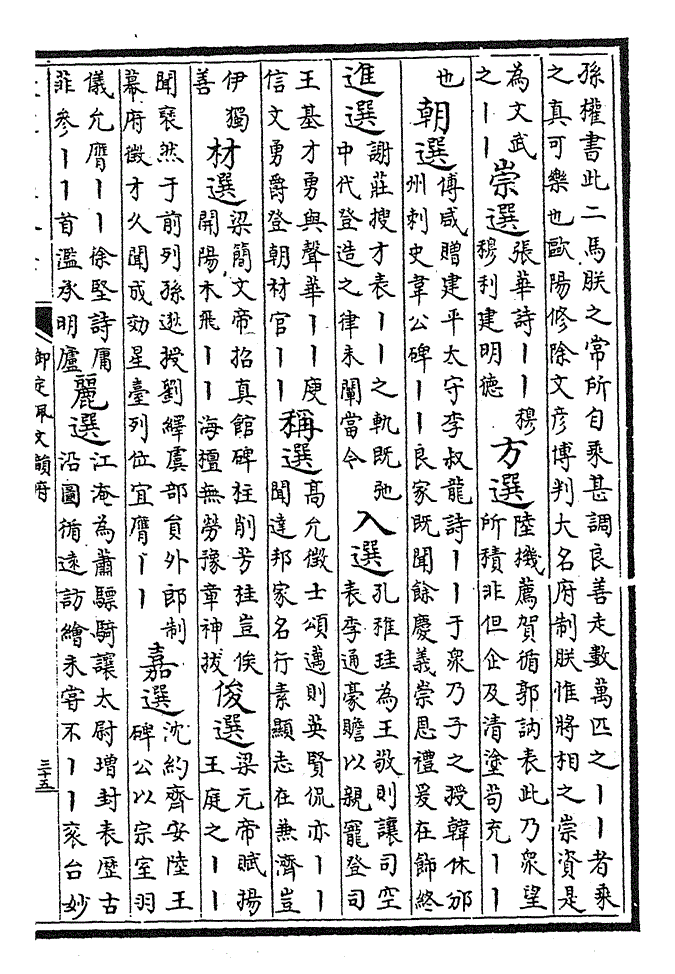 孫權書此二馬朕之常所自乘甚調良善走數萬匹之丨丨者乘
之真可樂也歐陽修除文彥博判大名府制朕惟將相之崇資是
為文武
之丨丨
崇選
張華詩丨丨穆
穆利建明德
方選
陸機薦賀循郭訥表此乃衆望
所積非但企及清塗苟充丨丨
也
朝選
傅咸贈建平太守李叔龍詩丨丨于衆乃子之授韓休邠
州刺史韋公碑丨丨良家既聞餘慶義崇恩禮爰在飾終
進選
謝莊搜才表丨丨之軌既弛
中代登造之律未闡當令
入選
孔稚珪為王敬則讓司空
表李通豪贍以親寵登司
王基才勇與聲華丨丨庾
信文勇爵登朝材官丨丨
稱選
高允徵士頌邁則英賢侃亦丨丨
聞達邦家名行素顯志在兼濟豈
伊獨
善
材選
梁簡文帝招真館碑柱削芳桂豈俟
開陽木飛丨丨海檀無勞豫章神拔
俊選
梁元帝賦揚
王庭之丨丨
聞裒然于前列孫逖授劉繹虞部員外郎制
幕府徵才久聞成効星臺列位宜膺丨丨
嘉選
沈約齊安陸王
碑公以宗室羽
儀允膺丨丨徐堅詩庸
菲參丨丨首濫承明廬
麗選
江淹為蕭驃騎讓太尉增封表歷古
沿圖循遠訪繪未寄不丨丨衮台妙
御定佩文韻府
三十五